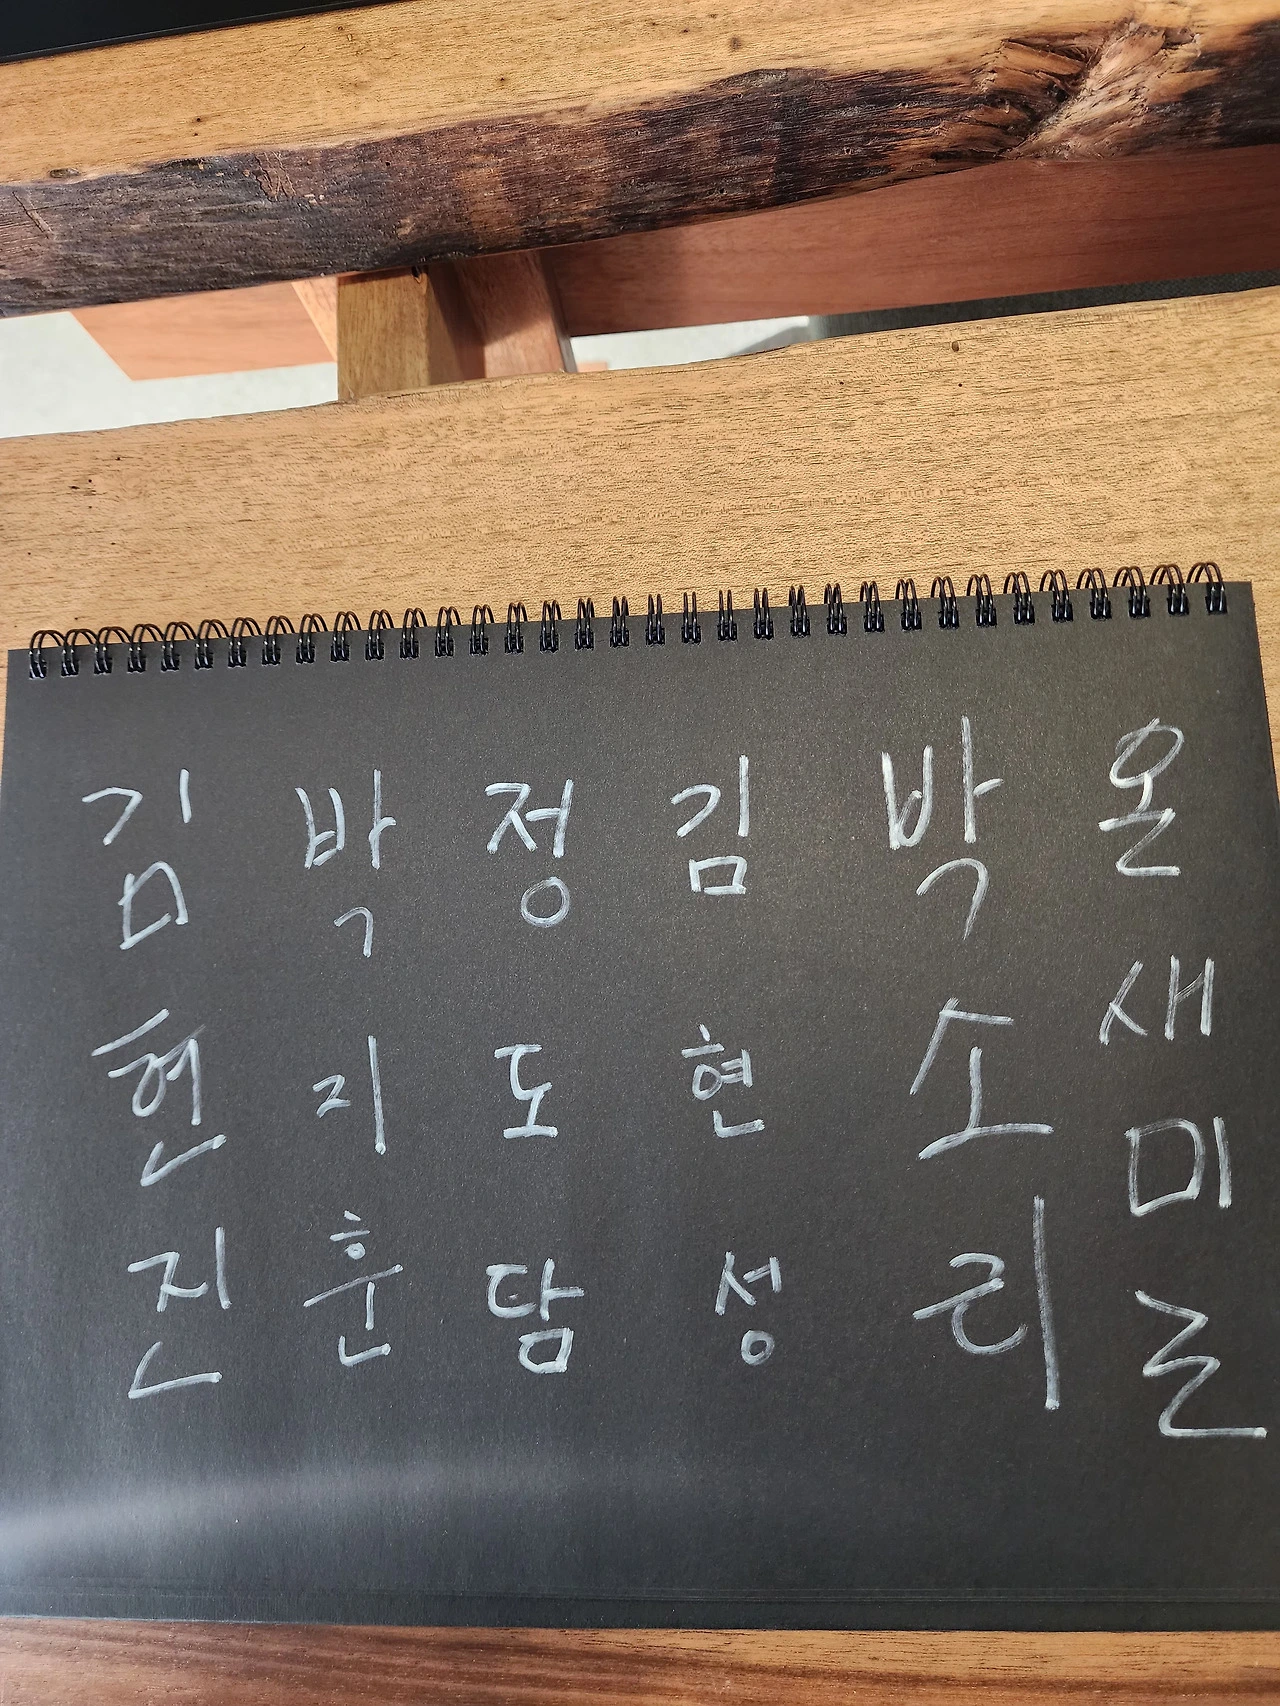 온새미로
박소리
김현성
정도담
박지훈
김현진